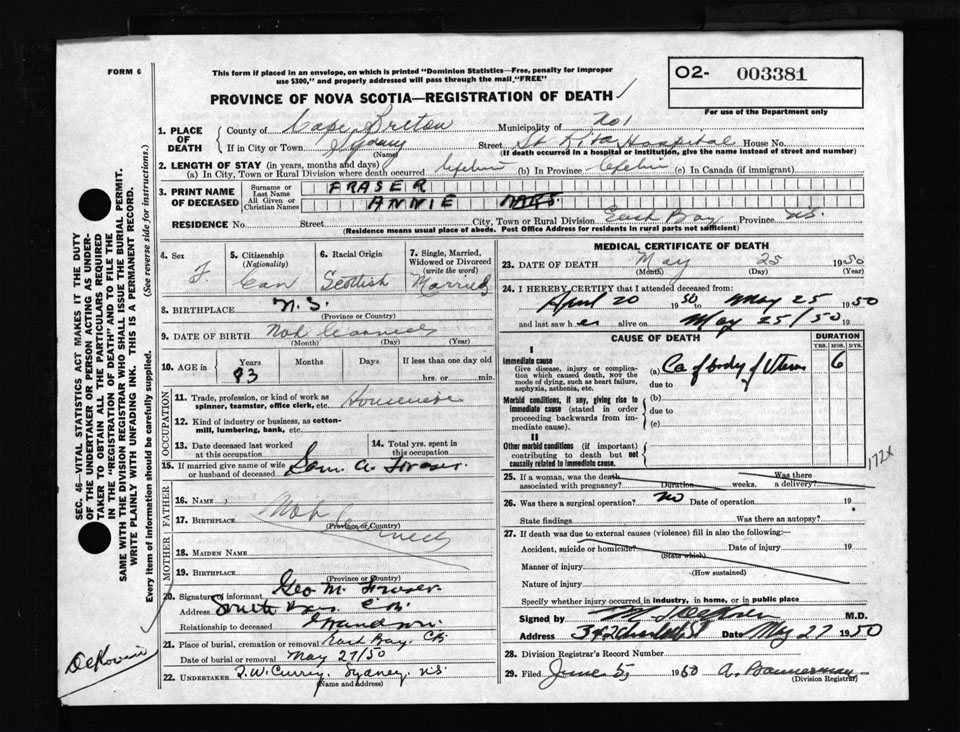 FORM 6
This form if placed in an envelope, on which is printed "Dominion Statistics—Free, penalty for improper
use $300," and properly addressed will pass through the mail, "FREE"
O2- 003381
For use of the Department only
PROVINCE OF NOVA SCOTIA—REGISTRATION OF DEATH
1. PLACE OF DEATH
County of Cape Breton Municipality of No 1
If in City or Town Sydney Street St. Rita Hospital House No.
(Name) (If death occurred in a hospital or institution, give the name instead of street and number)
2. LENGTH OF STAY (in years, months and days)
(a) In City, Town or Rural Division where death occurred Lifetime (b) In Province Lifetime (c) In Canada (if immigrant)
3. PRINT NAME OF DECEASED
Surname or Last Name FRASER
All Given or Christian Names ANNIE MRS.
RESIDENCE No. Street City, Town or Rural Division East Bay Province N.S.
(Residence means usual place of abode. Post Office Address for residents in rural parts not sufficient)
4. Sex F.
5. Citizenship (Nationality) Can
6. Racial Origin Scottish
7. Single, Married, Widowed or Divorced (write the word) Married
8. BIRTHPLACE N.S.
(Province or Country)
9. DATE OF BIRTH Not learned
(Month) (Day) (Year)
10. AGE in Years 93 Months Days If less than one day
hrs. or min.
OCCUPATION
11. Trade, profession, or kind of work as spinner, teamster, office clerk, etc. Housewife
12. Kind of industry or business, as cotton-mill, lumbering, bank, etc.
13. Date deceased last worked at this occupation
14. Total yrs. spent in this occupation
15. If married give name of wife or husband of deceased Sam. A. Fraser.
FATHER
16. NAME Not learned
17. BIRTHPLACE
(Province or Country)
MOTHER
18. MAIDEN NAME
19. BIRTHPLACE
(Province or Country)
20. Signature of informant Geo M. Fraser.
Address South Bar. C.B.
Relationship to deceased Grandson.
21. Place of burial, cremation or removal East Bay. CB
Date of burial or removal May 27/50
22. UNDERTAKER T.W. Curry, Sydney N.S.
(Name and Address)
MEDICAL CERTIFICATE OF DEATH
23. DATE OF DEATH May 25 1950
(Month) (Day) (Year)
24. I HEREBY CERTIFY that I attended deceased from:
April 20 1950 to May 25 1950
and last saw her alive on May 25/50 19
CAUSE OF DEATH DURATION
YRS. MOS. DYS.
I
Immediate cause
Give disease, injury or complication which caused death, NOT the mode of dying, such as heart failure, asphyxia, asthenia, etc.
(a) Ca of body of Uterus 6
due to
Morbid conditions, if any, giving rise to immediate cause (stated in order proceeding backwards from immediate cause).
(b)
due to
(c)
II
Other morbid conditions (if important) contributing to death but not causally related to immediate cause.
172x
25. If a woman, was the death associated with pregnancy? Duration weeks. Was there a delivery?
26. Was there a surgical operation? no Date of operation 19
State findings Was there an autopsy?
27. If death was due to external causes (violence) fill in also the following:—
Accident, suicide or homicide? Date of injury 19
(State which)
Manner of injury
(How sustained)
Nature of injury
Specify whether injury occurred in industry, in home, or in public place
Signed by M.D.
Address Date May 27 1950
28. Division Registrar's Record Number
29. Filed June 5, 1950 A. Bannerman
(Division Registrar)
SEC. 46—VITAL STATISTICS ACT MAKES IT THE DUTY
OF THE UNDERTAKER OR PERSON ACTING AS UNDER-
TAKER TO OBTAIN ALL THE PARTICULARS REQUIRED
IN THE "REGISTRATION OF DEATH" AND TO FILE THE
SAME WITH THE DIVISION REGISTRAR WHO SHALL ISSUE THE BURIAL PERMIT.
WRITE PLAINLY WITH UNFADING INK. THIS IS A PERMANENT RECORD.
Every item of information should be carefully supplied. (See reverse side for instructions.)